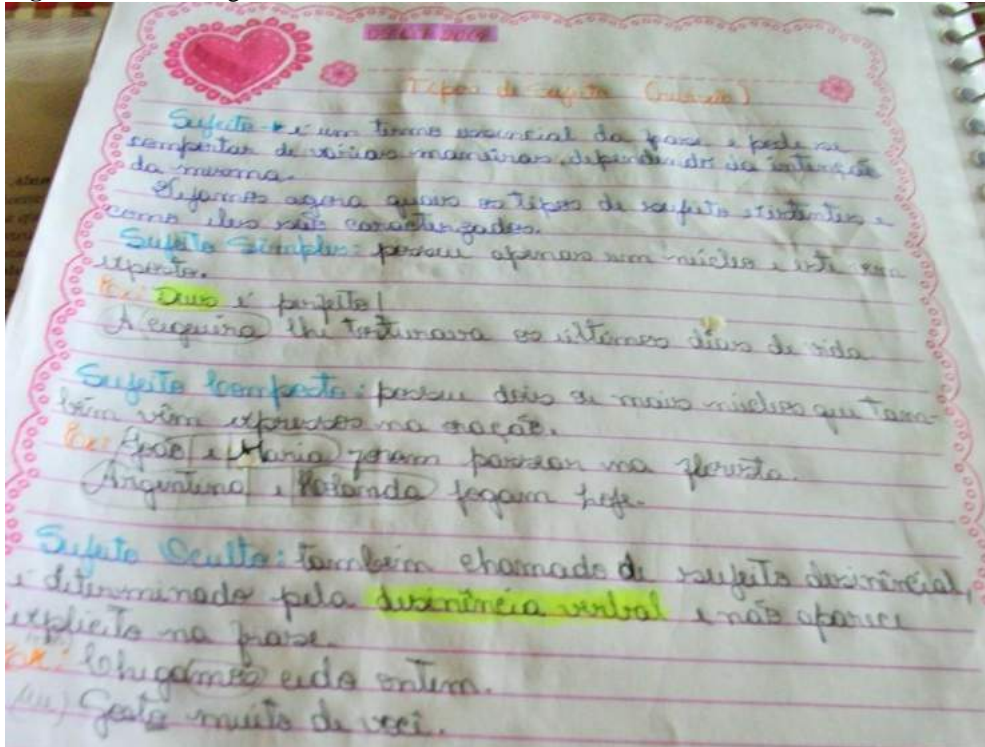 Tipos de sujeito (revisão)
Sujeito → é um termo essencial da frase e pode se
comportar de várias maneiras, dependendo da intenção
da mesma.
Vejamos agora quais os tipos de sujeito existentes e
como eles são caracterizados.
Sujeito Simples: possui apenas um núcleo e este vem
exposto.
Ex: Deus é perfeito!
A cegueira lhe torturava os últimos dias de vida
Sujeito Composto: possui dois ou mais núcleos que tam-
bém vêm expressos na oração.
Ex: João e Maria foram passear na floresta.
Argentina e Holanda jogam hoje.
Sujeito Oculto: também chamado de sujeito desinêncial,
é determinado pela desinência verbal e não aparece
explícito na frase.
Ex: Chegamos cedo ontem.
(eu) Gosto muito de você.